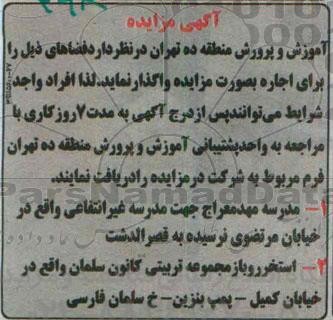 آگهی مزایده
آموزش و پرورش منطقه ده تهران درنظردارد فضاهای ذیل را
برای اجاره بصورت مزایده واگذارنماید.لذا افراد واجد
شرایط می‌توانندپس ازدرج آگهی به مدت۷روزکاری با
مراجعه به واحدپشتیبانی آموزش و پرورش منطقه ده تهران
فرم مربوط به شرکت درمزایده رادریافت نمایند.
۱– مدرسه مهدمعراج جهت مدرسه غیرانتفاعی واقع در
خیابان مرتضوی نرسیده به قصرالدشت
۲– استخرروبازمجموعه تربیتی کانون سلمان واقع در
خیابان کمیل – پمپ بنزین– خ سلمان فارسی
ParsNamadData